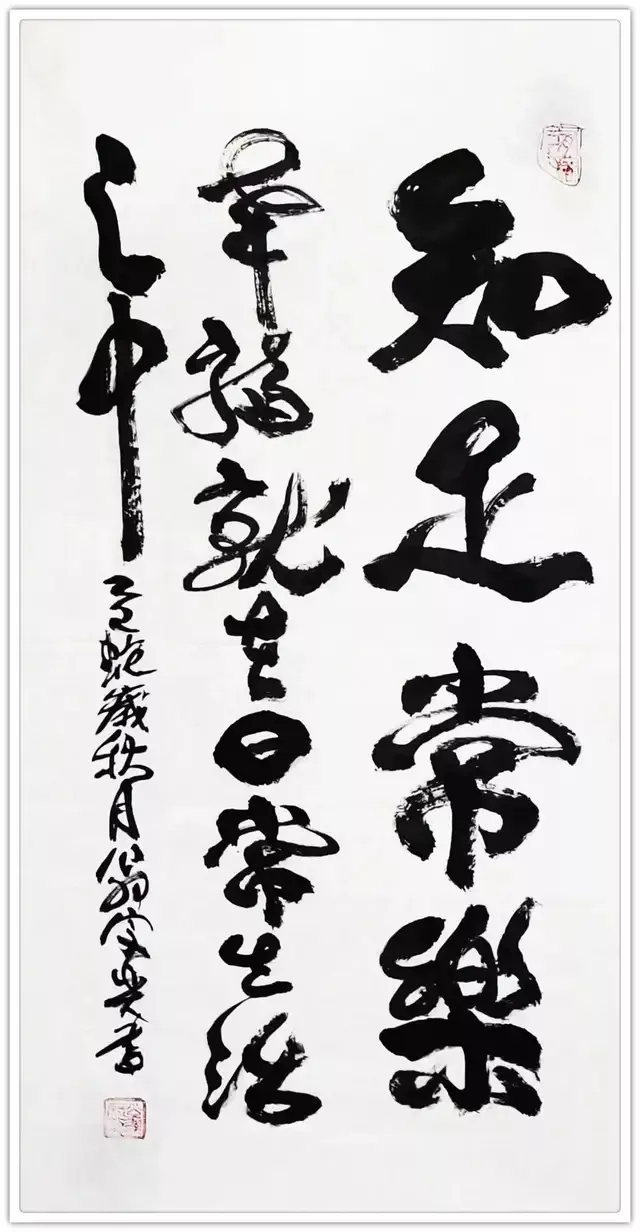 知足常樂
幸福就在日常生活
之中
乙巳蛇歲秋月翁書